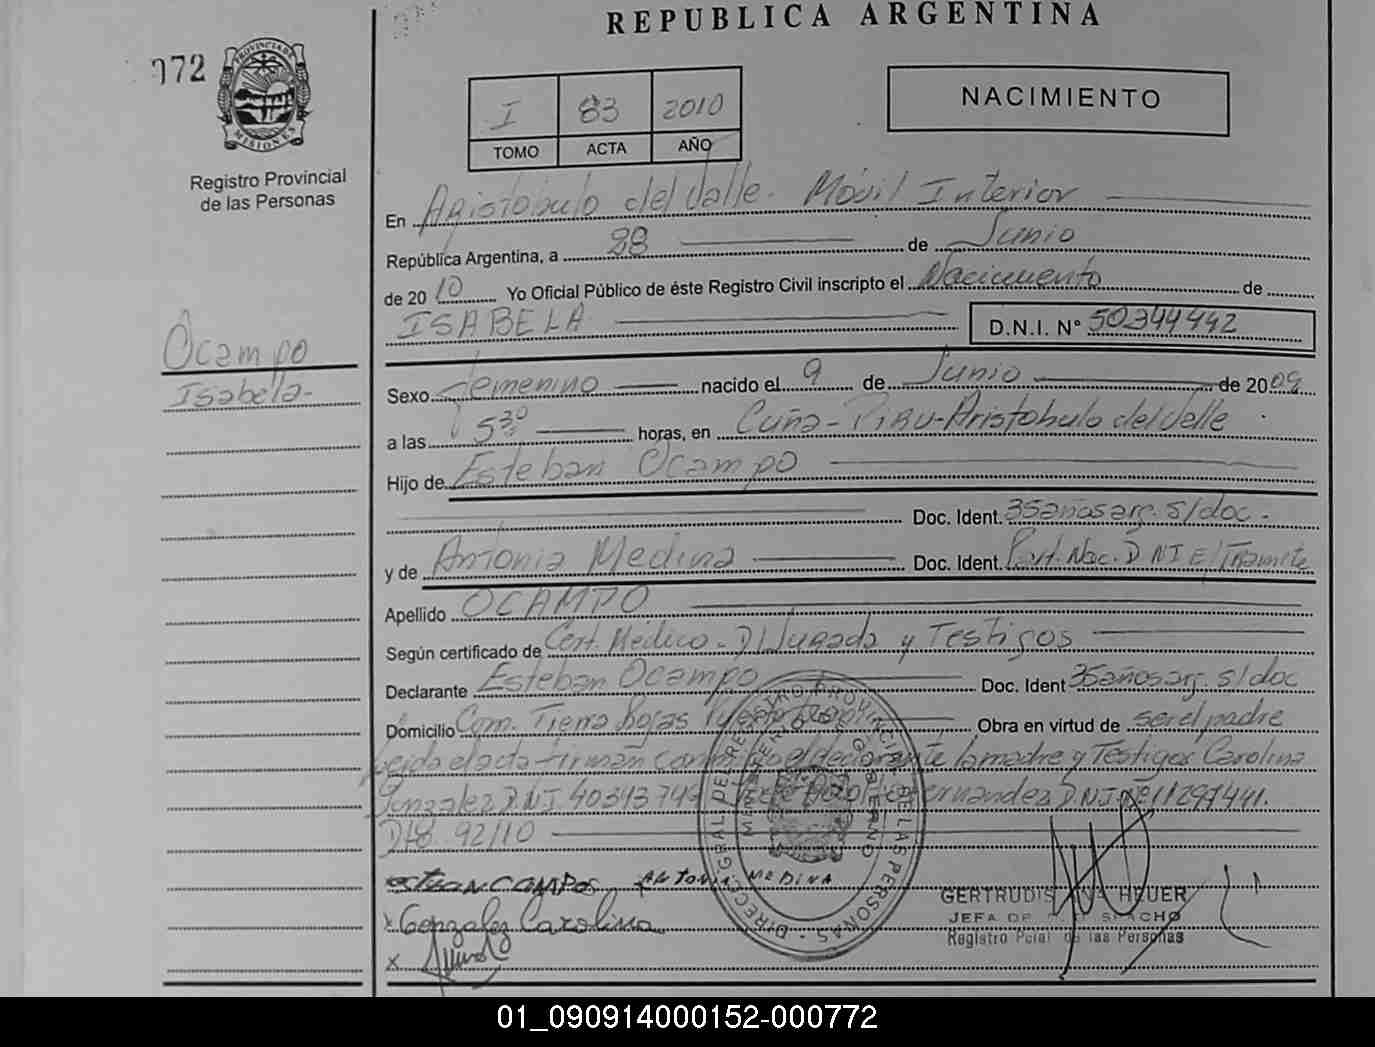 REPUBLICA ARGENTINA
072
PROVINCIA DE MISIONES
Registro Provincial
de las Personas
I 83 2010
TOMO ACTA AÑO
NACIMIENTO
En Aristobulo del Valle. Móvil Interior
República Argentina, a 28 de Junio
de 2010 Yo Oficial Público de éste Registro Civil inscripto el Nacimiento de
ISABELA D.N.I. Nº 50344442
Ocampo
Isabela-
Sexo femenino nacido el 9 de Junio de 2009
a las 5:30 horas, en Cuña-Pirú-Aristobulo del Valle
Hijo de Esteban Ocampo
Doc. Ident. 35años arg. s/doc.
y de Antonia Medina Doc. Ident. Part. Nac. DNI E/Tramite
Apellido OCAMPO
Según certificado de Cert. Médico - D/Jurada y Testigos
Declarante Esteban Ocampo Doc. Ident 35años arg. s/doc
Domicilio Com. Tierra Rojas Obra en virtud de ser el padre
Leida el acta firman conmigo el declarante la madre y Testigos Carolina
Gonzalez D.N.I. Hernandez D.N.I. Nº 11297441.
92/10
ANTONIA MEDINA
x Gonzalez Carolina
x
DIREC. GRAL. DEL REGISTRO PROVINCIAL DE LAS PERSONAS
GERTRUDIS HEUER
JEFA DE
Registro Pcial de las Personas
01_090914000152-000772